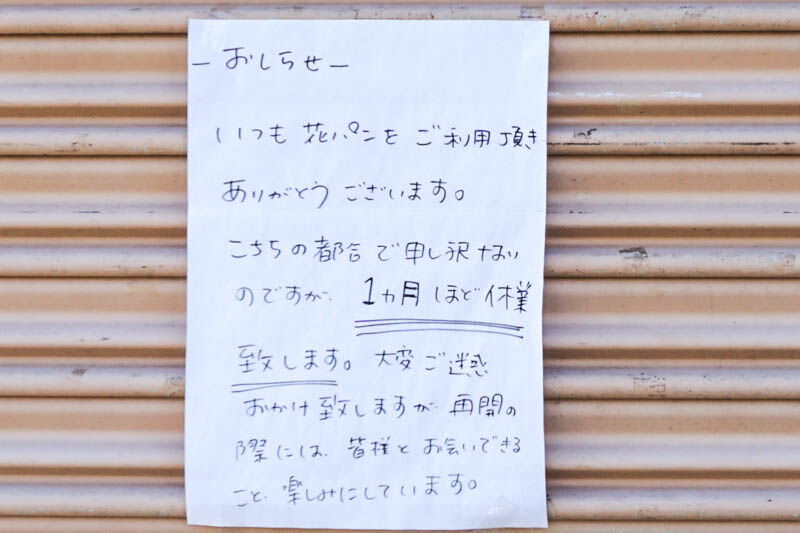 －おしらせ－
いつも花パンをご利用頂き
ありがとうございます。
こちらの都合で申し訳ない
のですが、1ヵ月ほど休業
致します。大変ご迷惑
おかけ致しますが、再開の
際には、皆様とお会いできる
こと、楽しみにしています。